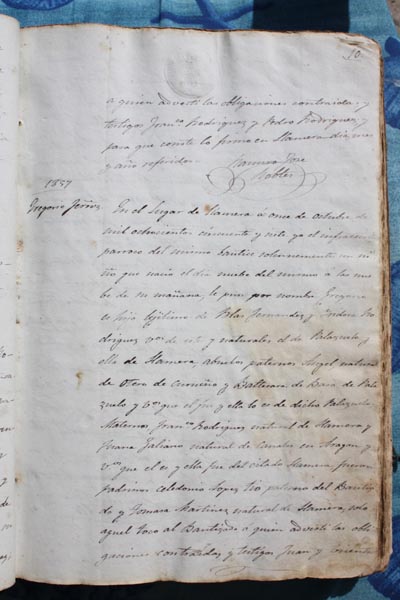 10.
a quien advertí las obligaciones contraidas y
testigos Fran.co Rodriguez y Pedro Rodriguez, y
para que conste lo firmo en Llamera dia mes
y año referidos.
Jose
Robles
1857
Gregorio
En el Lugar de Llamera á once de octubre de
mil ochocientos cincuenta y siete yo el infrascrito
parroco del mismo bautice solemnemente un ni
ño que nació el dia nueve del mismo á las nue
be de su mañana, le puse por nombre Gregorio
es hijo legitimo de Blas Fernandez y Isidora Ro
driguez v.os de y naturales el de Palazuelo, y
ella de Llamera, abuelos paternos Angel natural
de Otero de Curueño y Baltasara de Bara de Pala
zuelo y v.os que el fue y ella lo es de dicho Palazuelo,
Maternos Fran.co Rodriguez natural de Llamera y
Juana Galiano natural de en Aragon y
v.os que el es y ella fue del citado Llamera, fueron
padrinos Celedonio Lopez tio paterno del Bautiza
do y Tomasa Martinez natural de Llamera, solo
aquel toco al Bautizado á quien advertí las obli
gaciones contraidas y testigos Juan y